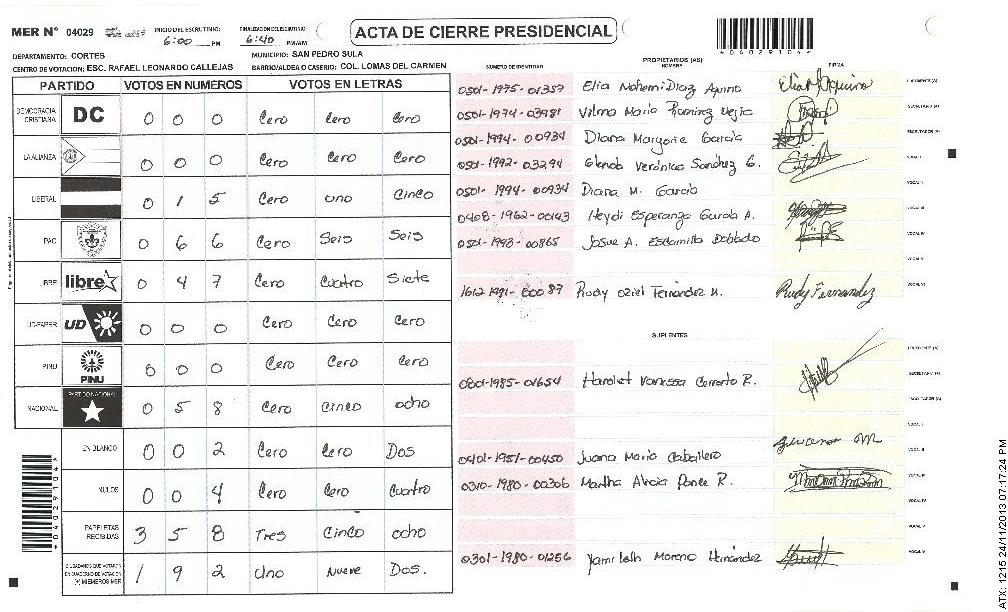 MER N° 04029 INICIO DEL ESCRUTINIO: 6:00 PM FINALIZACION DEL ESCRUTINIO: 6:40 PM/AM
ACTA DE CIERRE PRESIDENCIAL
*04029104*
DEPARTAMENTO: CORTES MUNICIPIO: SAN PEDRO SULA
CENTRO DE VOTACION: ESC. RAFAEL LEONARDO CALLEJAS BARRIO/ALDEA O CASERIO: COL. LOMAS DEL CARMEN
PARTIDO VOTOS EN NUMEROS VOTOS EN LETRAS
DEMOCRACIA CRISTIANA DC 0 0 0 Cero Cero Cero
LA ALIANZA 0 0 0 Cero Cero Cero
LIBERAL 0 1 5 Cero uno cinco
PAC 0 6 6 Cero Seis Seis
LIBRE libre 0 4 7 Cero Cuatro Siete
UD-FAPER UD 0 0 0 Cero Cero Cero
PINU PINU 0 0 0 Cero Cero Cero
NACIONAL PARTIDO NACIONAL 0 5 8 Cero cinco ocho
EN BLANCO 0 0 2 Cero Cero Dos
NULOS 0 0 4 Cero Cero Cuatro
PAPELETAS RECIBIDAS 3 5 8 Tres Cinco ocho
CIUDADANOS QUE VOTARON EN CUADERNO DE VOTACION (+) MIEMBROS MER 1 9 2 Uno Nueve Dos.
*04029104*
PROPIETARIOS (AS)
NUMERO DE IDENTIDAD NOMBRE FIRMA
0501-1975-01357 Elia Nohemi Diaz Aquino PRESIDENTE (A)
0501-1974-03981 Vilma Maria Ramirez Mejia SECRETARIO (A)
0501-1994-00934 Diana Marjorie Garcia ESCRUTADOR (A)
0501-1992-03294 Glenda Verónica Sanchez G. VOCAL I
0501-1994-00934 Diana M. Garcia VOCAL II
0408-1962-00143 Heydi Esperanza Garcia A. VOCAL III
0501-1993-00865 Josue A. Escamilla Doblado VOCAL IV
VOCAL V
1612-1991-00087 Rudy Oziel Fernández M. Rudy Fernandez VOCAL VI
SUPLENTES
PRESIDENTE (A)
0801-1985-01654 Harolet Vanessa Cerrato R. SECRETARIO (A)
ESCRUTADOR (A)
VOCAL I
0401-1951-00450 Juana Maria Caballero VOCAL II
0310-1980-00306 Martha Alicia Ponce R. VOCAL III
VOCAL IV
VOCAL V
0301-1980-01256 Yamileth Moreno Hernández
ATX: 1215 24/11/2013 07:17:24 PM